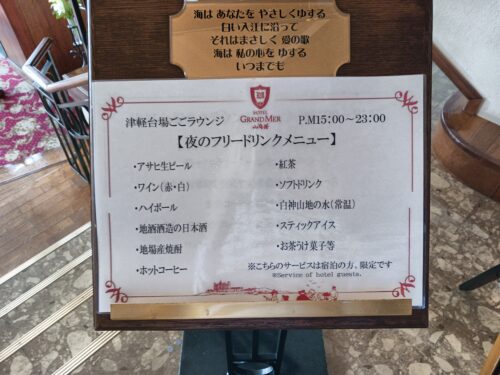 海は あなたを やさしくゆする
白い入江に沿って
それはまさしく 愛の歌
海は 私の心を ゆする
いつまでも
HOTEL
GRAND MER
山海荘
津軽台場ごごラウンジ P.M15:00～23:00
【夜のフリードリンクメニュー】
・アサヒ生ビール
・ワイン(赤・白)
・ハイボール
・地酒酒造の日本酒
・地場産焼酎
・ホットコーヒー
・紅茶
・ソフトドリンク
・白神山地の水(常温)
・スティックアイス
・お茶うけ菓子等
※こちらのサービスは宿泊の方、限定です
※Service of hotel guests.